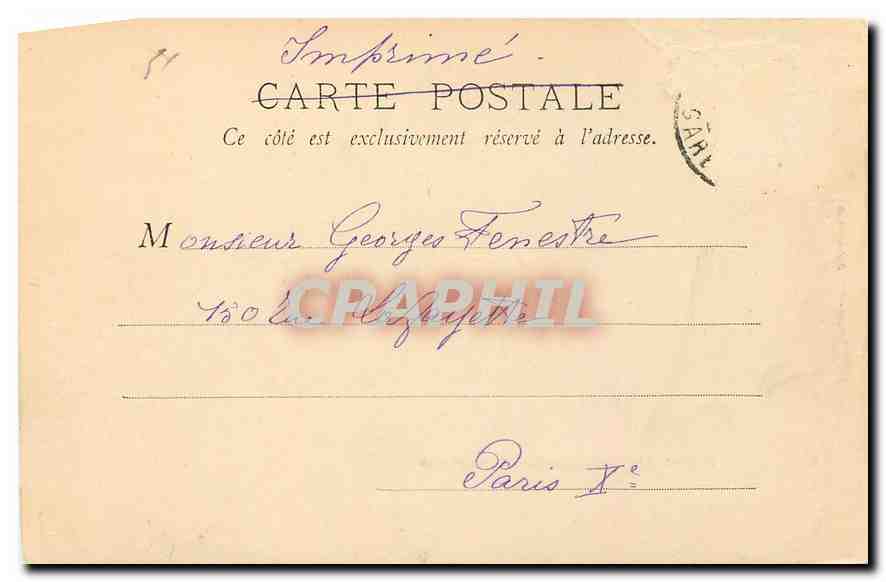 51
Imprimé.
CARTE POSTALE
Ce côté est exclusivement réservé à l'adresse.
GARE
Monsieur Georges Fenestre
150 Rue Lafayette
CPAPHIL
Paris Xe